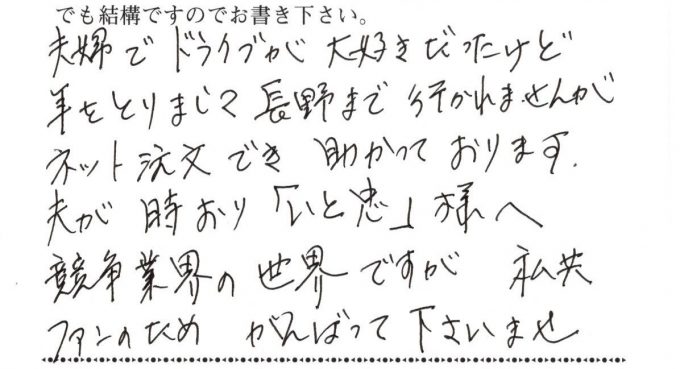 でも結構ですのでお書き下さい。
夫婦で ドライブが 大好きだったけど
年をとりまして 長野まで 行かれませんが
ネット注文でき 助かっております.
夫が 時おり 「いと忠」様へ
競争業界の 世界ですが 私共
ファンのため がんばって下さいませ